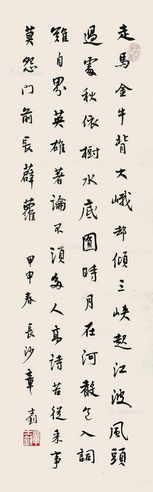 走馬金牛背大峨却傾三峽起江波風頭
過處秋依樹水底圓時月在河數入詞
雖自英雄著論不須多人高詩苦從來事
莫怨門前長薜蘿 甲申春 長沙章釗